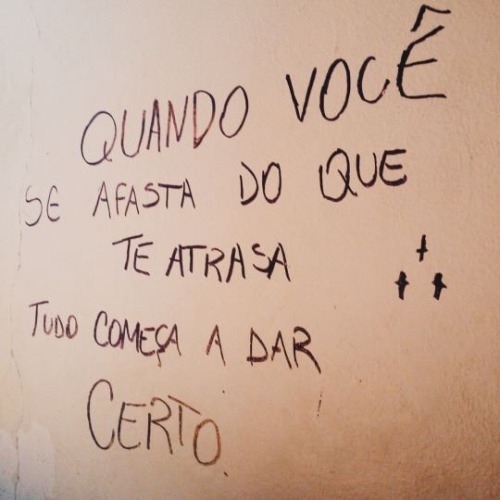 QUANDO VOCÊ
SE AFASTA DO QUE
TE ATRASA
TUDO COMEÇA A DAR
CERTO.